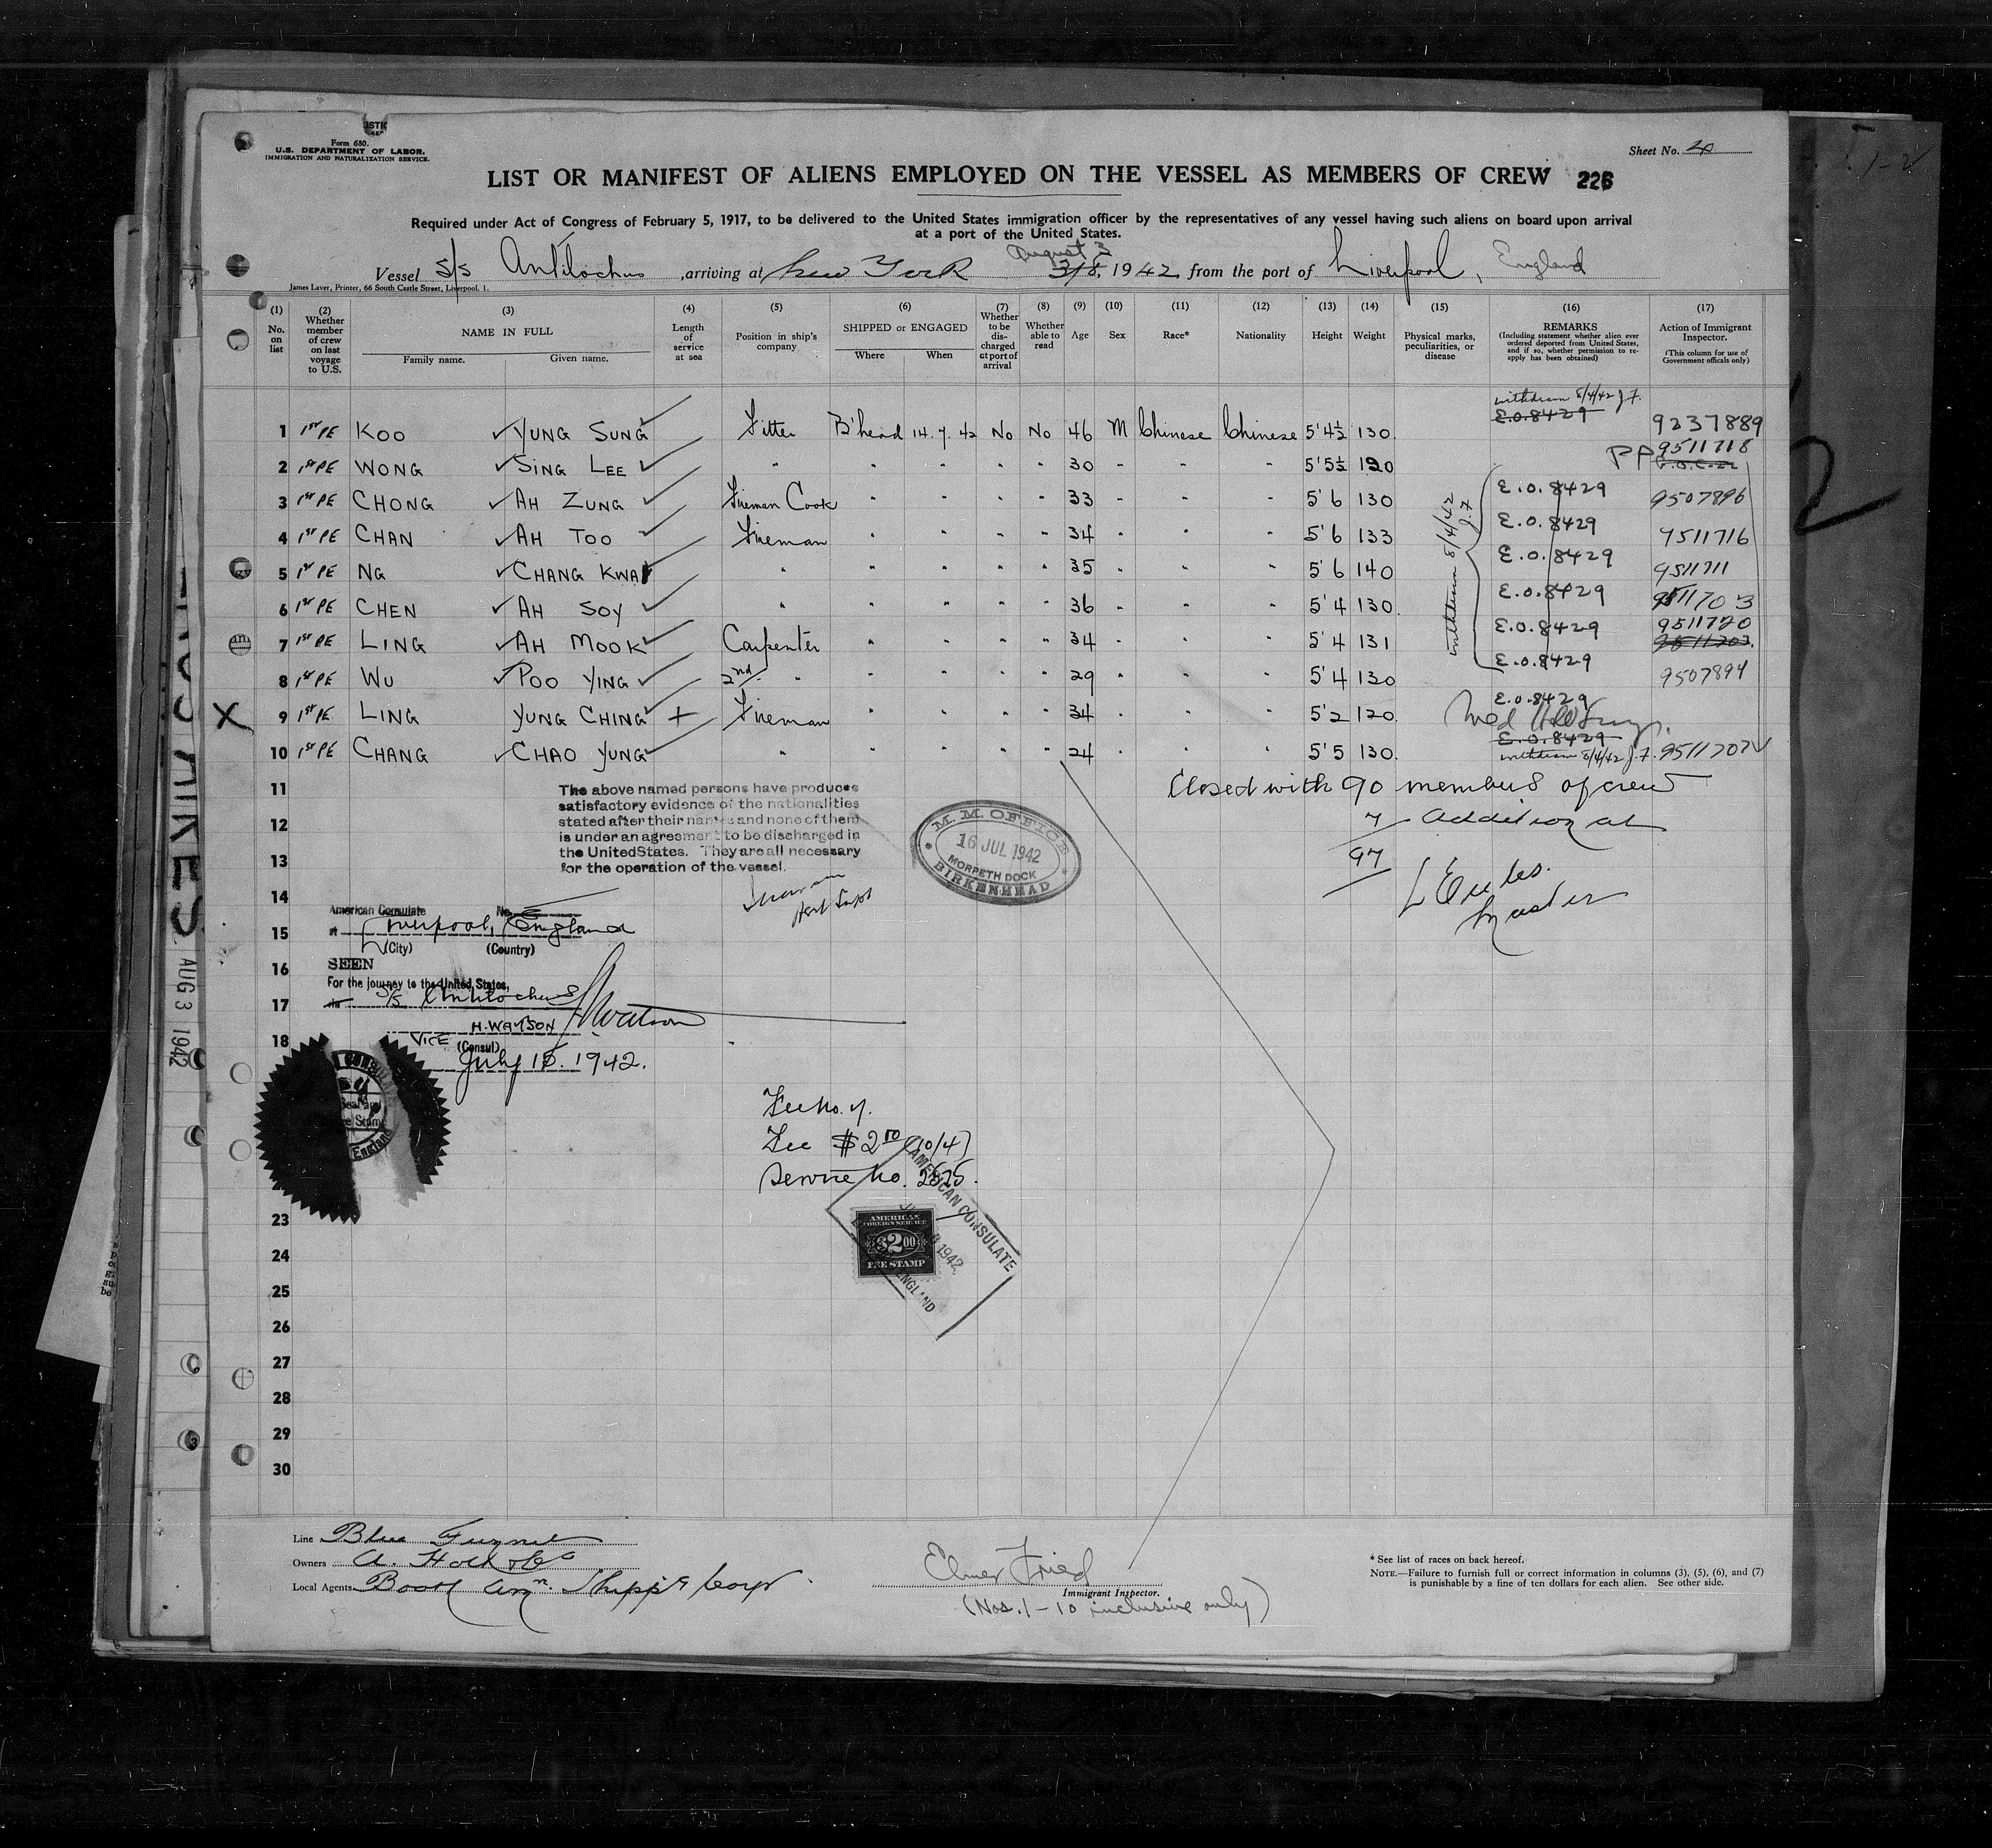 Form 680.
U.S. DEPARTMENT OF LABOR.
IMMIGRATION AND NATURALIZATION SERVICE.
Sheet No. 4
LIST OR MANIFEST OF ALIENS EMPLOYED ON THE VESSEL AS MEMBERS OF CREW 226
Required under Act of Congress of February 5, 1917, to be delivered to the United States immigration officer by the representatives of any vessel having such aliens on board upon arrival
at a port of the United States.
August 3
Vessel S/S Antilochus, arriving at New York 3/8. 1942, from the port of Liverpool, England
James Laver, Printer, 66 South Castle Street, Liverpool. 1.
(1) No. on list
(2) Whether member of crew on last voyage to U.S.
(3) NAME IN FULL Family name. Given name.
(4) Length of service at sea
(5) Position in ship's company
(6) SHIPPED or ENGAGED Where When
(7) Whether to be discharged at port of arrival
(8) Whether able to read
(9) Age
(10) Sex
(11) Race*
(12) Nationality
(13) Height
(14) Weight
(15) Physical marks, peculiarities, or disease
(16) REMARKS (Including statement whether alien ever ordered deported from United States, and if so, whether permission to re-apply has been obtained)
(17) Action of Immigrant Inspector. (This column for use of Government officials only)
withdrawn 8/4/42 J.F.
1 1st PE KOO YUNG SUNG Fitter B'head 14.7.42 No No 46 M Chinese Chinese 5'4½ 130 E.O.8429 9237889
2 1st PE WONG SING LEE " " " " " 30 " " " 5'5½ 120 PP 9511718
3 1st PE CHONG AH ZUNG Fireman Cook " " " " 33 " " " 5'6 130 E.O.8429 9507896
4 1st PE CHAN AH TOO Fireman " " " " 34 " " " 5'6 133 E.O.8429 9511716
5 1st PE NG CHANG KWAI " " " " " 35 " " " 5'6 140 E.O.8429 9511711
6 1st PE CHEN AH SOY " " " " " 36 " " " 5'4 130 E.O.8429 9511703
7 1st PE LING AH MOOK Carpenter " " " " 34 " " " 5'4 131 E.O.8429 9511720
8 1st PE WU POO YING 2nd " " " " " 29 " " " 5'4 130 E.O.8429 9507894
withdrawn 8/4/42 J.F.
X 9 1st PE LING YUNG CHING + Fireman " " " " 34 " " " 5'2 120 E.O.8429
10 1st PE CHANG CHAO YUNG " " " " " 24 " " " 5'5 130 E.O.8429 9511707
withdrawn 8/4/42 J.F.
11
12
13
14
15
16
17
18
23
24
25
26
27
28
29
30
Closed with 90 members of crew
7 additional
97
Master
The above named persons have produced
satisfactory evidence of the nationalities
stated after their names and none of them
is under an agreement to be discharged in
the United States. They are all necessary
for the operation of the vessel.
M. M. OFFICE
16 JUL 1942
MORPETH DOCK
BIRKENHEAD
American Consulate No.
at Liverpool, England
(City) (Country)
SEEN
For the journey to the United States,
S/S Antilochus
H. WATSON
H Watson
VICE (Consul)
July 15. 1942.
Fee No. 7.
Fee $2.00 (10/4)
Service No. 2625.
AMERICAN CONSULATE
1942
ENGLAND
AMERICAN
FOREIGN SERVICE
$2.00
FEE STAMP
AUG 3 1942
Line Blue Funnel
Owners A. Holt & Co
Local Agents Booth Am'n. Shipp'g Corp'n
Elmer Fried
Immigrant Inspector.
(Nos. 1-10 inclusive only)
* See list of races on back hereof.
NOTE.—Failure to furnish full or correct information in columns (3), (5), (6), and (7)
is punishable by a fine of ten dollars for each alien. See other side.